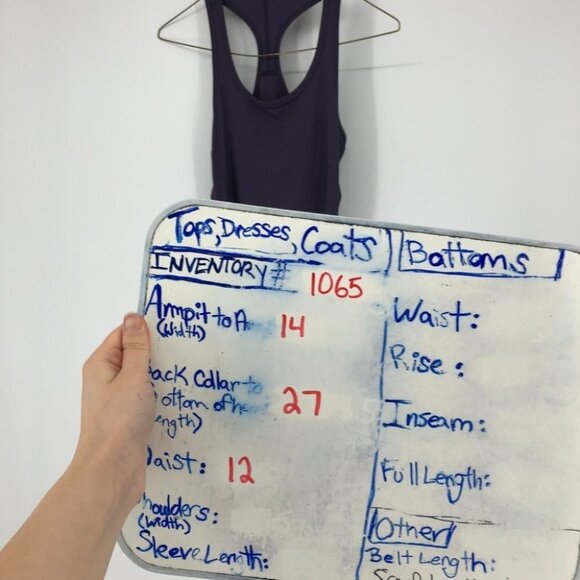 Tops, Dresses, Coats
INVENTORY # 1065
Armpit to A 14
(Width)
ack Collar to
ottom of he 27
ength)
aist: 12
houlders:
(width)
Sleeve Length:
Bottoms
Waist:
Rise:
Inseam:
Full Length:
Other
Belt Length: